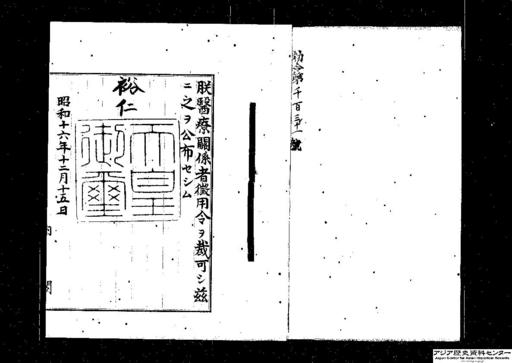 勅令第千百三十一號
朕醫療關係者徵用令ヲ裁可シ茲
ニ之ヲ公布セシム
裕仁
天皇
御璽
昭和十六年十二月十五日
内閣
アジア歴史資料センター
Japan Center for Asian Historical Records